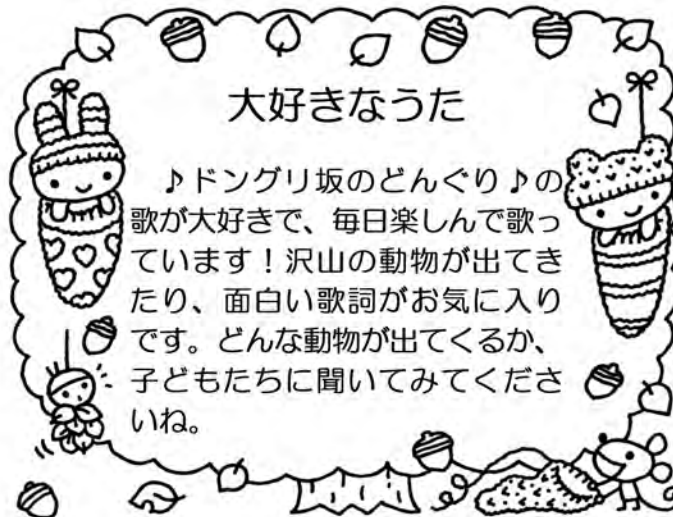 大好きなうた
♪ドングリ坂のどんぐり♪の
歌が大好きで、毎日楽しんで歌っ
ています！沢山の動物が出てき
たり、面白い歌詞がお気に入り
です。どんな動物が出てくるか、
子どもたちに聞いてみてくださ
いね。